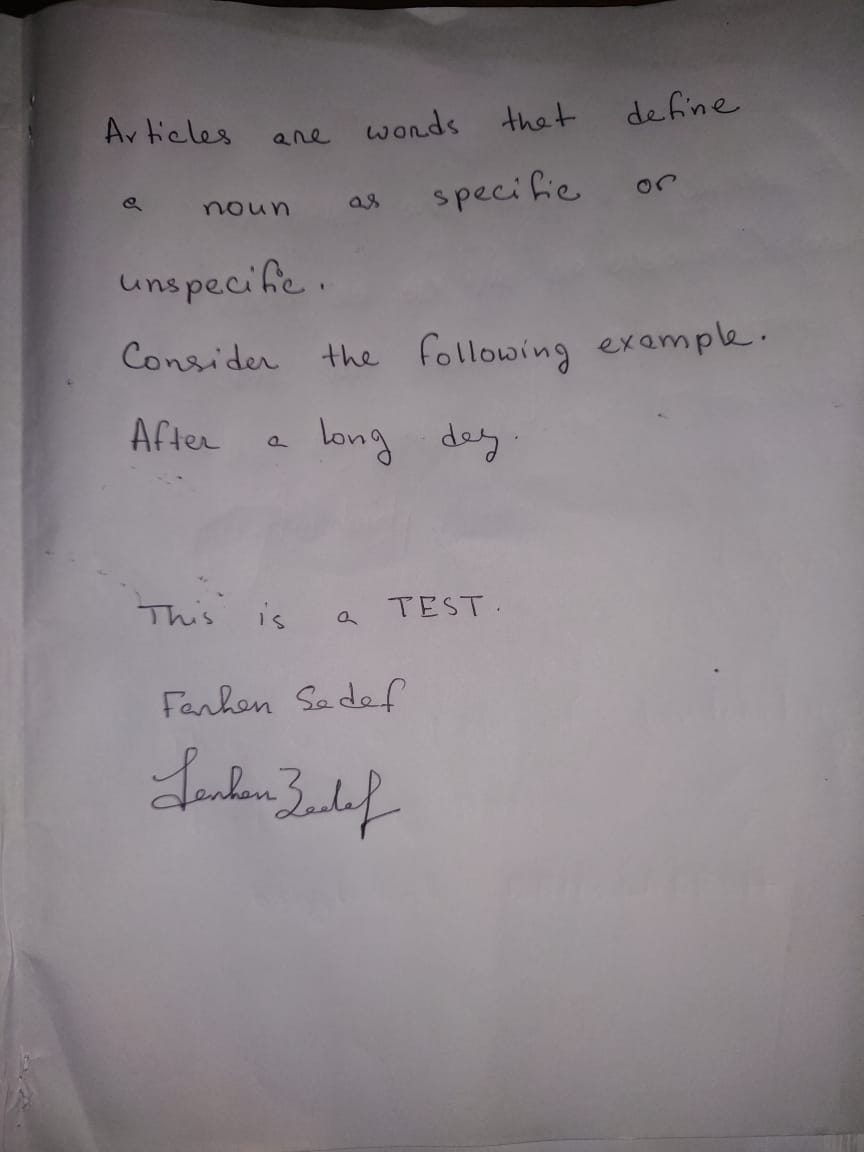 Articles are words that define
a noun as specific or
unspecific.
Consider the following example.
After a long day.
This is a TEST.
Farhan Sadaf
Farhan Sadaf